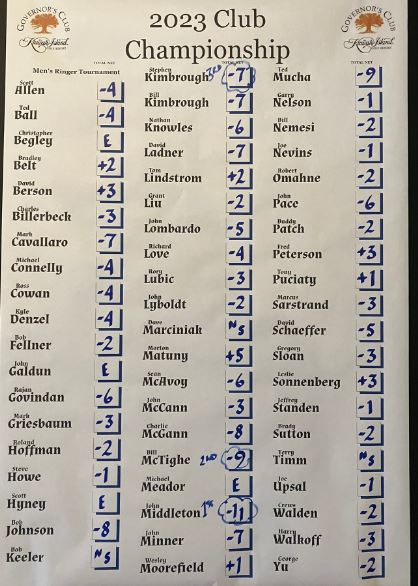 GOVERNOR'S CLUB
2023 Club
Championship
GOVERNOR'S CLUB
Kiawah Island
Kiawah Island
TOTAL NET
TOTAL NET
TOTAL NET
Men's Ringer Tournament
Scott
Allen -4
Ted
Ball -4
Christopher
Begley E
Bradley
Belt +2
David
Berson +3
Charles
Billerbeck -3
Mark
Cavallaro -7
Michael
Connelly -4
Ross
Cowan -4
Kyle
Denzel -4
Bob
Fellner -2
John
Galdun E
Rajan
Govindan -6
Mark
Griesbaum -3
Roland
Hoffman -2
Steve
Howe -1
Scott
Hyney E
Bob
Johnson -8
Bob
Keeler NS
Stephen
Kimbrough 3RD -7
Bill
Kimbrough -7
Nathan
Knowles -6
David
Ladner -7
Tom
Lindstrom +2
Grant
Liu -2
John
Lombardo -5
Richard
Love -4
Rory
Lubic -3
John
Lyboldt -2
Dave
Marciniak NS
Marton
Matuny +5
Sean
McAvoy -6
John
McCann -3
Charlie
McGann -8
Bill
McTighe 2ND -9
Michael
Meador E
John
Middleton 1ST -11
John
Minner -7
Wesley
Moorefield +1
Ted
Mucha -9
Garry
Nelson -1
Bill
Nemesi -2
Joe
Nevins -1
Robert
Omahne -2
John
Pace -6
Buddy
Patch -2
Fred
Peterson +3
Tony
Puciaty +1
Marcus
Sarstrand -3
David
Schaeffer -5
Gregory
Sloan -3
Leslie
Sonnenberg +3
Jeffrey
Standen -1
Brady
Sutton -2
Terry
Timm NS
Joe
Upsal -1
Crewe
Walden -2
Harry
Walkoff -3
George
Yu -2